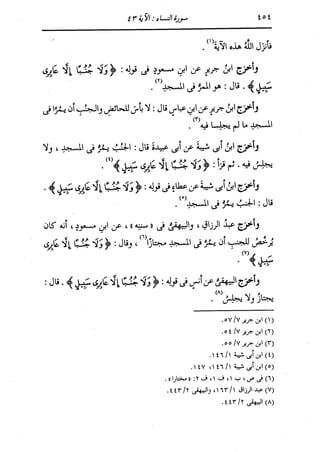 ٤٥٤ سورة النساء: الآية ٤٣
فأنزل اللهُ هذه الآيةَ(١).
وأخرَج ابنُ جريرٍ عن ابنِ مسعودٍ فى قولِه: ﴿وَلَا جُنُبًا إِلَّا عَابِرِى
سَبِيلٍ﴾. قال: هو الممرُّ فى المسجدِ(٢).
وأخرَج ابنُ جريرٍ عن ابنِ عباسٍ قال: لا بأسَ للحائضِ والجنبِ أن يمُرَّا فى
المسجدِ ما لم يجلِسا فيه(٣).
وأخرَج ابنُ أبى شيبةَ عن أبى عبيدةَ قال: الجنُبُ يمُرُّ فى المسجدِ، ولا
يجلِسُ فيه. ثم قرَأ: ﴿وَلَا جُنُبًا إِلَّا عَابِرِى سَبِيلٍ﴾(٤).
وأخرَج ابنُ أبى شيبةَ عن عطاءٍ فى قولِه: ﴿وَلَا جُنُبًا إِلَّا عَابِرِى سَبِيلٍ﴾.
قال: الجنبُ يمُرُّ فى المسجدِ(٥).
وأخرَج عبدُ الرزاقِ، والبيهقىُّ فى «سننِه»، عن ابنِ مسعودٍ، أنه كان
يُرخِّصُ للجنبِ أن يمُرَّ فى المسجدِ مجتازًا(٦)، وقال: ﴿وَلَا جُنُبًا إِلَّا عَابِرِى
سَبِيلٍ﴾(٧).
وأخرَج البيهقىُّ عن أنسٍ فى قولِه: ﴿وَلَا جُنُبًا إِلَّا عَابِرِى سَبِيلٍ﴾. قال:
يجتازُ ولا يجلِسُ(٨).
(١) ابن جرير ٧/ ٥٧.
(٢) ابن جرير ٧/ ٥٤.
(٣) ابن جرير ٧/ ٥٥.
(٤) ابن أبى شيبة ١/ ١٤٦.
(٥) ابن أبى شيبة ١/ ١٤٦، ١٤٧.
(٦) فى ص، ب ١، ف ١، ف ٢: «مختارا».
(٧) عبد الرزاق ١/ ١٦٣، والبيهقى ٢/ ٤٤٣.
(٨) البيهقى ٢/ ٤٤٣.